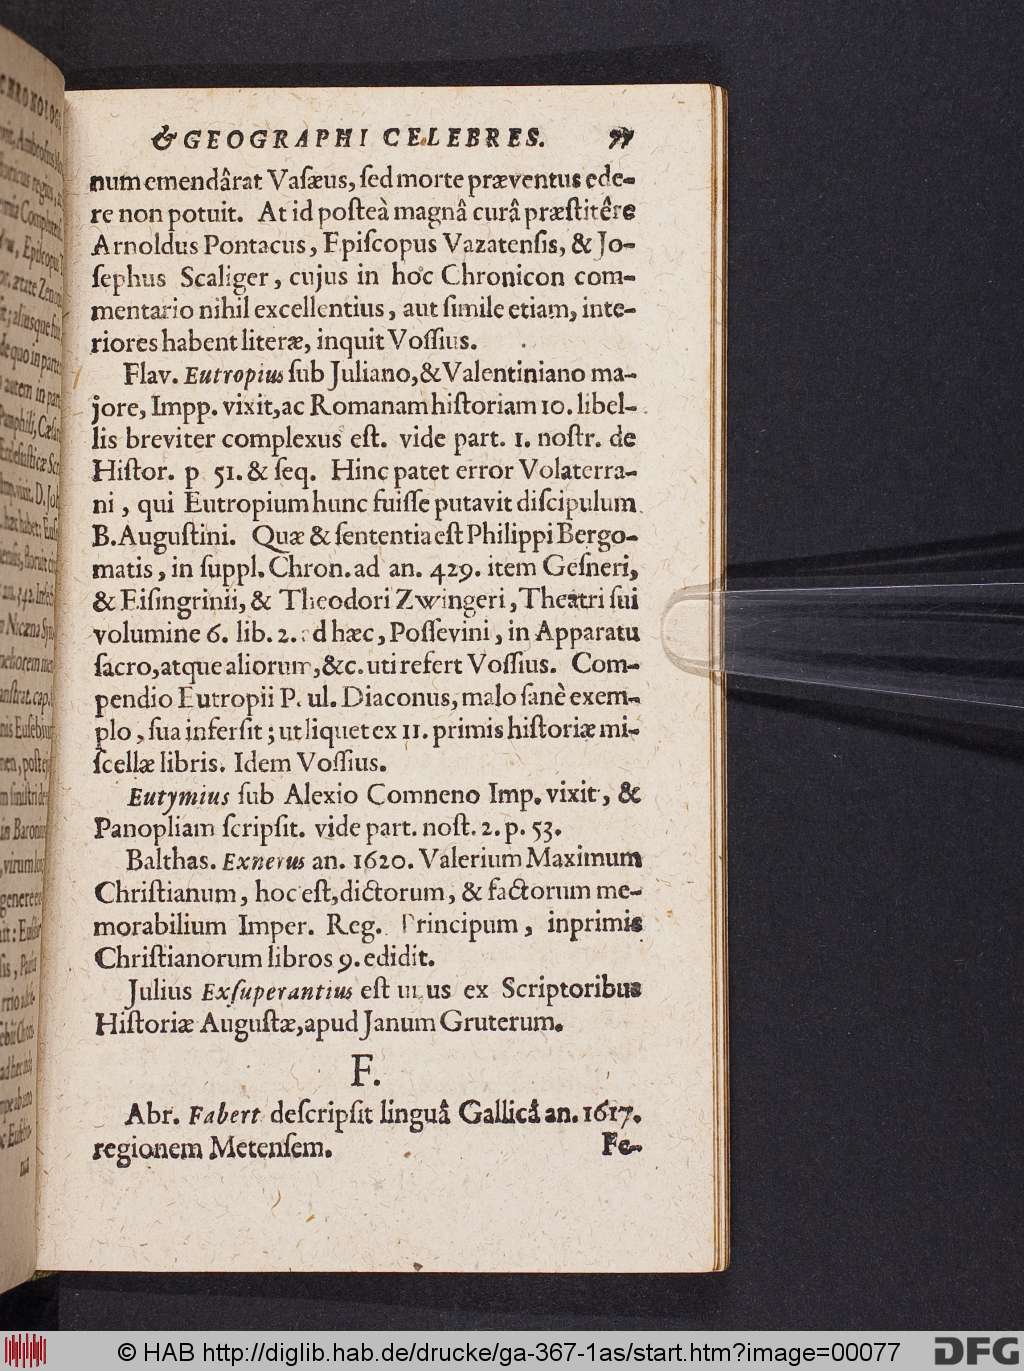 & GEOGRAPHI CELEBRES. 77
num emendârat Vaſæus, ſed morte præventus ede-
re non potuit. At id poſteà magnâ curâ præſtitêre
Arnoldus Pontacus, Epiſcopus Vazatenſis, & Jo-
ſephus Scaliger, cujus in hoc Chronicon com-
mentario nihil excellentius, aut ſimile etiam, inte-
riores habent literæ, inquit Voſſius.
Flav. Eutropius ſub Juliano, & Valentiniano ma-
jore, Impp. vixit, ac Romanam hiſtoriam 10. libel-
lis breviter complexus eſt. vide part. 1. noſtr. de
Hiſtor. p 51. & ſeq. Hinc patet error Volaterra-
ni, qui Eutropium hunc fuiſſe putavit diſcipulum
B. Auguſtini. Quæ & ſententia eſt Philippi Bergo-
matis, in ſuppl. Chron. ad an. 429. item Geſneri,
& Eiſingrinii, & Theodori Zwingeri, Theatri ſui
volumine 6. lib. 2. ad hæc, Poſſevini, in Apparatu
ſacro, atque aliorum, &c. uti refert Voſſius. Com-
pendio Eutropii P. ul. Diaconus, malo ſanè exem-
plo, ſua inferſit; ut liquet ex 11. primis hiſtoriæ mi-
ſcellæ libris. Idem Voſſius.
Eutymius ſub Alexio Comneno Imp. vixit, &
Panopliam ſcripſit. vide part. noſt. 2. p. 53.
Balthas. Exnerus an. 1620. Valerium Maximum
Chriſtianum, hoc eſt, dictorum, & factorum me-
morabilium Imper. Reg. Principum, inprimis
Chriſtianorum libros 9. edidit.
Julius Exſuperantius eſt unus ex Scriptoribus
Hiſtoriæ Auguſtæ, apud Janum Gruterum.
F.
Abr. Fabert deſcripſit linguâ Gallicâ an. 1617.
regionem Metenſem. Fe-
© HAB http://diglib.hab.de/drucke/ga-367-1as/start.htm?image=00077 DFG